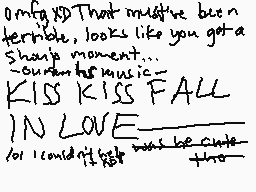 omfg XD That must've been
terrible, looks like you got a
shoujo moment...
-ouran hs music-
KISS KISS FALL
IN LOVE
lol I couldn't help was he cute
it XD tho